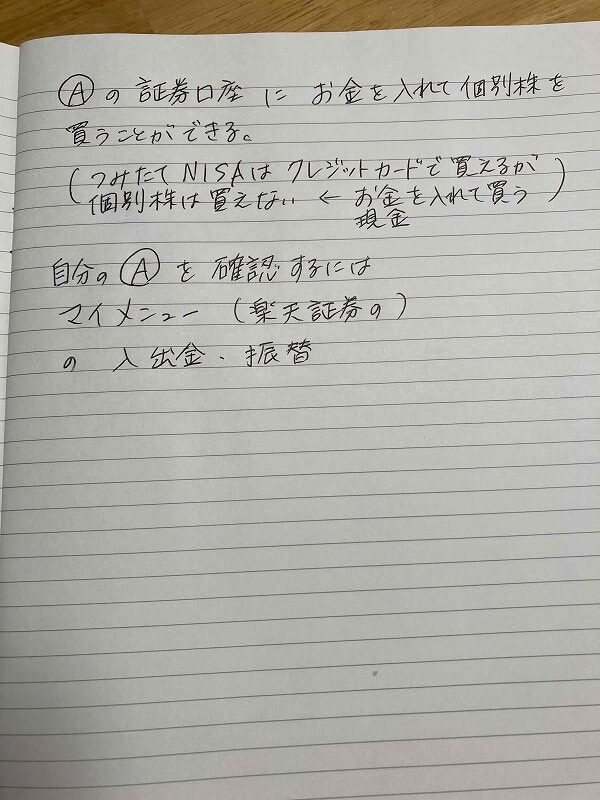 Ⓐの証券口座に お金を入れて個別株を
買うことができる。
(つみたてNISAはクレジットカードで買えるが
個別株は買えない ← お金を入れて買う)
現金
自分のⒶを確認するには
マイメニュー (楽天証券の)
の 入出金・振替